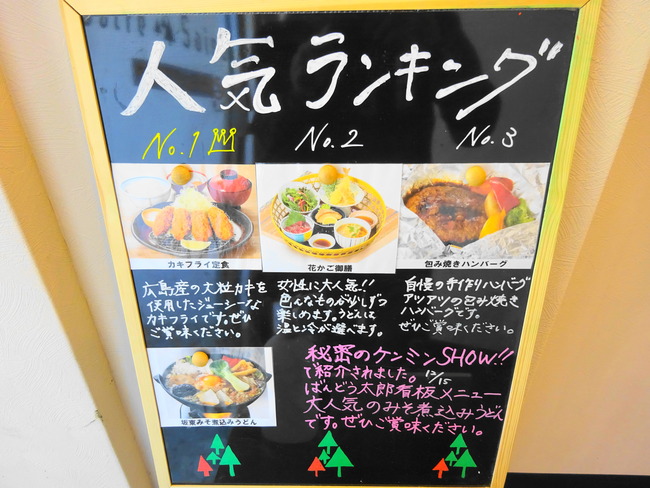 人気ランキング
No.1
No.2
No.3
カキフライ定食
花かご御膳
包み焼きハンバーグ
広島産の大粒カキを
使用したジューシーな
カキフライです。ぜひ
ご賞味ください。
女性に大人気!!
色んなものが少しずつ
楽しめます。うどんは
温と冷が選べます。
自慢の手作りハンバーグ
アツアツの包み焼き
ハンバーグです。
ぜひご賞味ください。
坂東みそ煮込みうどん
秘密のケンミンSHOW!!
で紹介されました。12/15
ばんどう太郎看板メニュー
大人気のみそ煮込みうどん
です。ぜひご賞味ください。